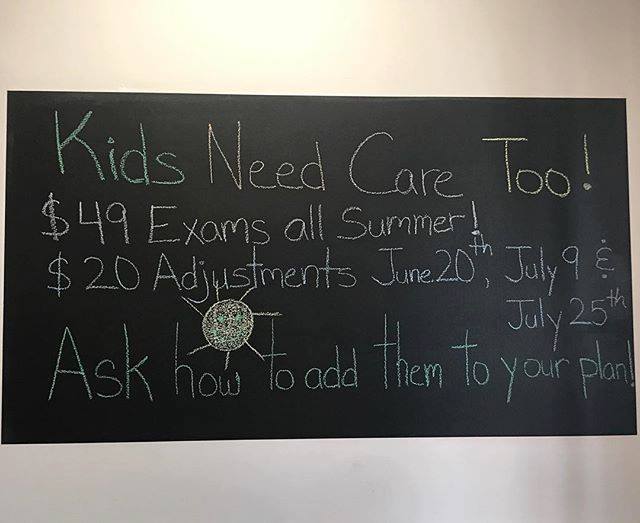 Kids Need Care Too!
$49 Exams all Summer!
$20 Adjustments June 20th, July 9 &
July 25th
Ask how to add them to your plan!